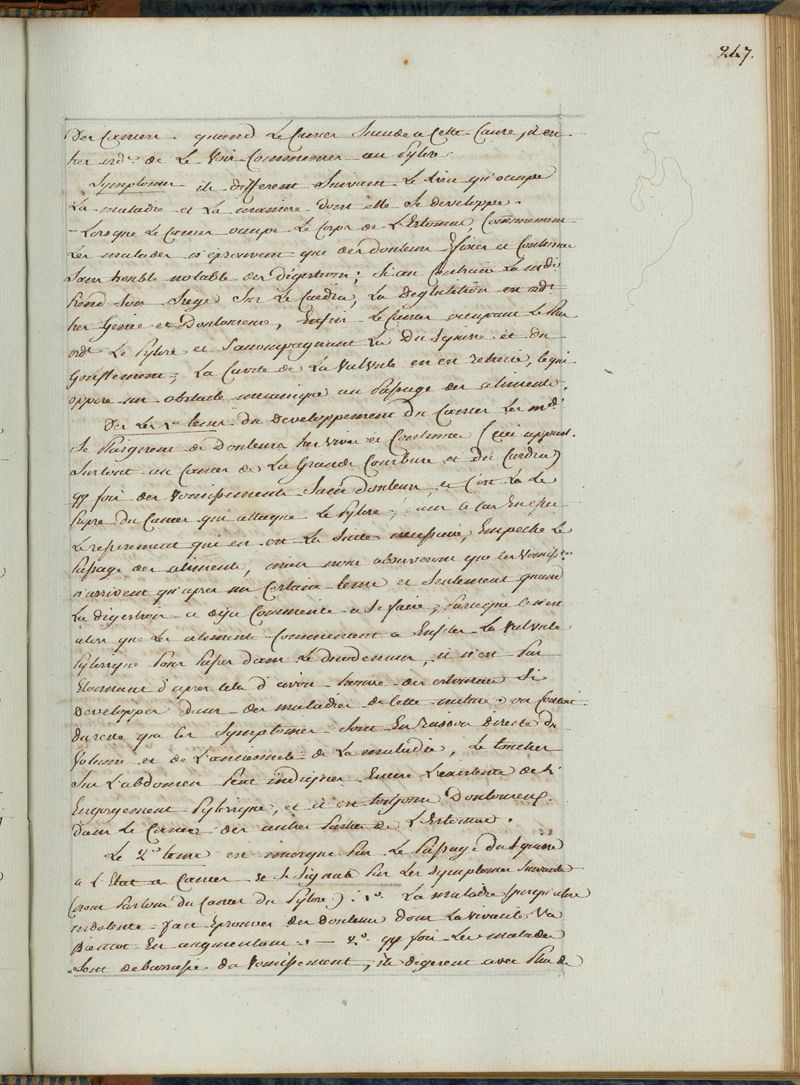 247.
Des Cancers. quand Le Cancer Succede a Cette Cause, il en
tres ord.^e de Le Voir Commencer au Pylore.
Symptomes ils different Suivant Le Lieu qu'occupe
La maladie et La maniere dont elle Se developpe.
- Lorsque Le Cancer occupe Le Corps de L'Estomac, Communement
Les malades n'eprouvent que des douleurs fixes et Continues
Sans trouble notable des digestions; Si au Contraire La m.^die
Prend Son Siege Sur Le Cardia, La Deglutition en est
tres Genée et Douloureuse, Enfin Le Cancer occupant Le Plus
ord.^t Le Pylore et S'accompagnant La du Squirre et du
Gonflement; La Cavité de La Valvule en est retrecie, ce qui
oppose un obstacle mecanique au Passage des aliments.
Des Les 1.^ers tems du Developpement du Cancer Les m.^des
Se Plaignent de Douleurs tres Vives et Continues (Ceci appart.
Surtout au Cancer de La Grande Courbure et du Cardia)
qq fois des Vomissements Sans Douleur, et C'est Le
Propre du Cancer qui attaque Le Pylore; dans Ce Cas En effet
Le resserrement qui en est La Suite necessaire, Empeche Le
Passage des aliments, mais nous observerons que Les Vomiss.^ts
n'arrivent qu'apres un Certain tems et Seulement quand
La digestion a deja Commencé a Se faire; Parceque Ce n'est
alors que Les aliments Commencent a Enfiler La Valvule
Pylorique Pour Passer dans Le duodenum, il n'est Pas
Etonnant d'apres Cela d'avoir trouvé des estomacs Si
Developpés dans des maladies de Cette nature: on Conçoit
Du reste que Les Symptomes Sont En raison directe du
Volume et de L'ancienneté de La maladie, Le toucher
Sur L'abdomen Peut indiquer Encore L'existence de L'
Engorgement Pylorique, et il est toujours Douloureux
Dans Le Cancer des autres Parties de L'Estomac.
Le 2.^e tems est marqué Par Le Passage du Squirre
a L'Etat de Cancer et Se Signale Par Les Symptomes Suivants
(nous Parlons du Cancer du Pylore): 1.^o La maladie jusqu'alors
indolente fait Eprouver des Douleurs dont La Vivacité Va
Bientot En augmentant. — 2.^o qq fois Les malades
Sont debarrassés du Vomissement, ils digerent avec Plus de